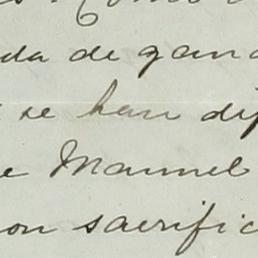 da de gana
se han dif
e Manuel
on sacrific